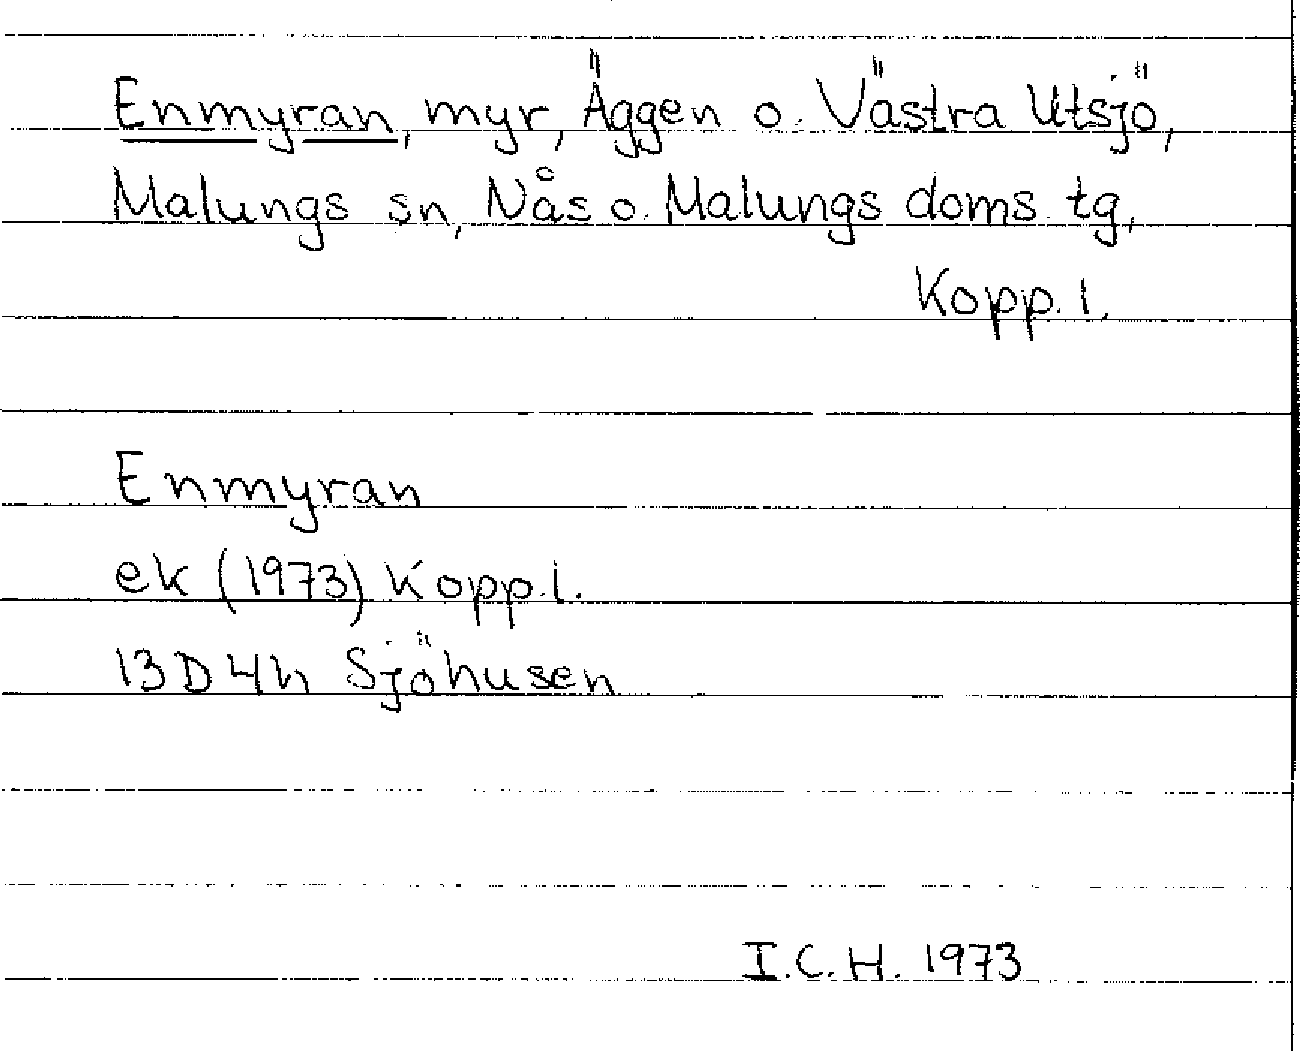 Enmyran, myr, Äggen o. Västra Utsjö,
Malungs sn, Nås o. Malungs doms. tg,
Kopp. l.
Enmyran
ek (1973) Kopp. l.
13D4h Sjöhusen
I.C.H. 1973